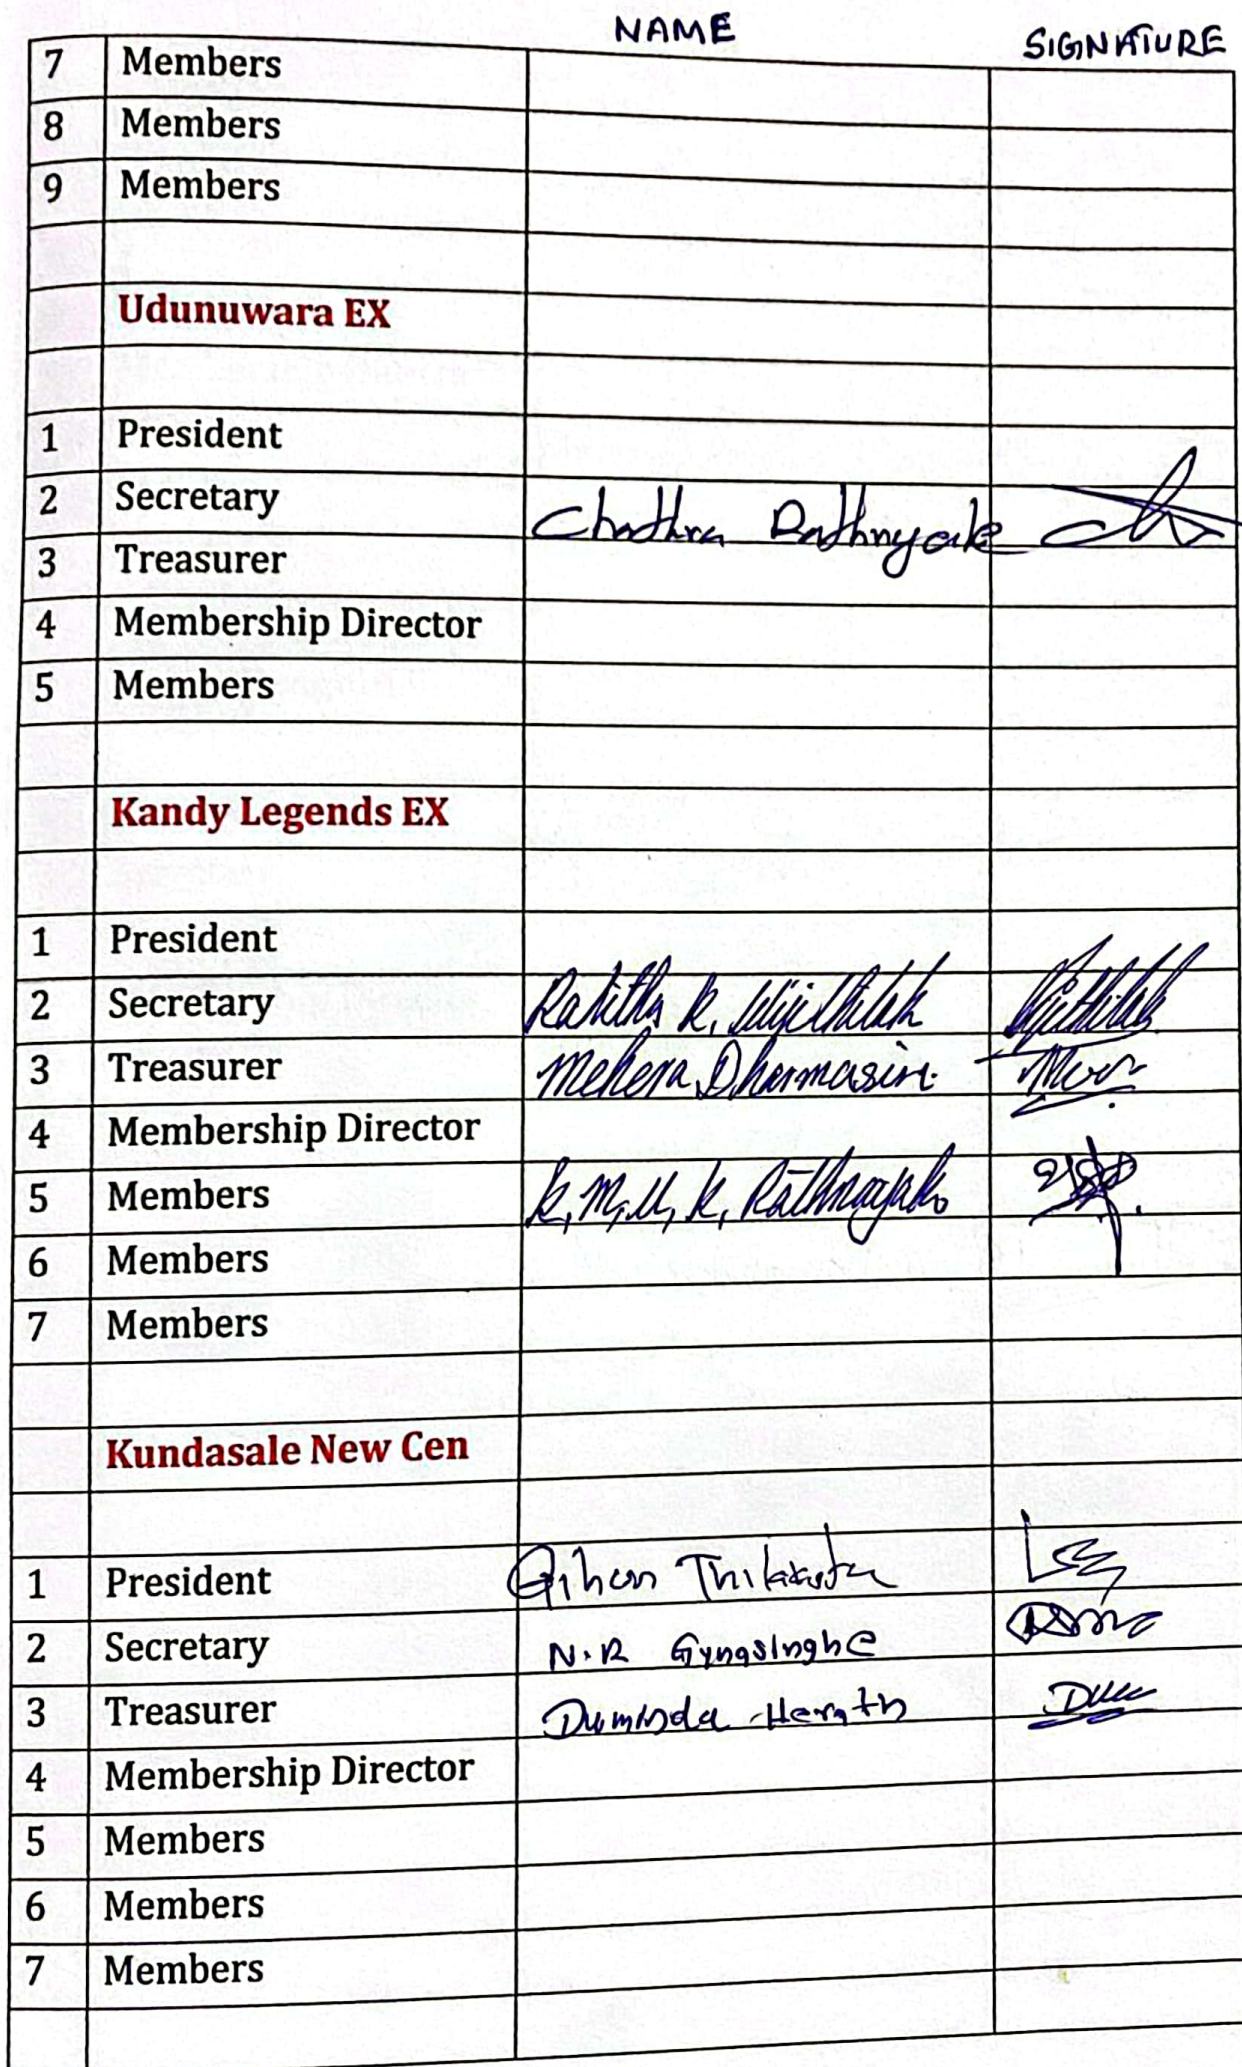 NAME SIGNATURE
7 Members
8 Members
9 Members
Udunuwara EX
1 President
2 Secretary Chathra Rathnyake
3 Treasurer
4 Membership Director
5 Members
Kandy Legends EX
1 President
2 Secretary Rakitha K. Wijethilak
3 Treasurer Mehera Dharmasiri
4 Membership Director
5 Members R.M.U.K. Rathnayake
6 Members
7 Members
Kundasale New Cen
1 President Gihan
2 Secretary N.R Gynasinghe
3 Treasurer Duminda Herath
4 Membership Director
5 Members
6 Members
7 Members